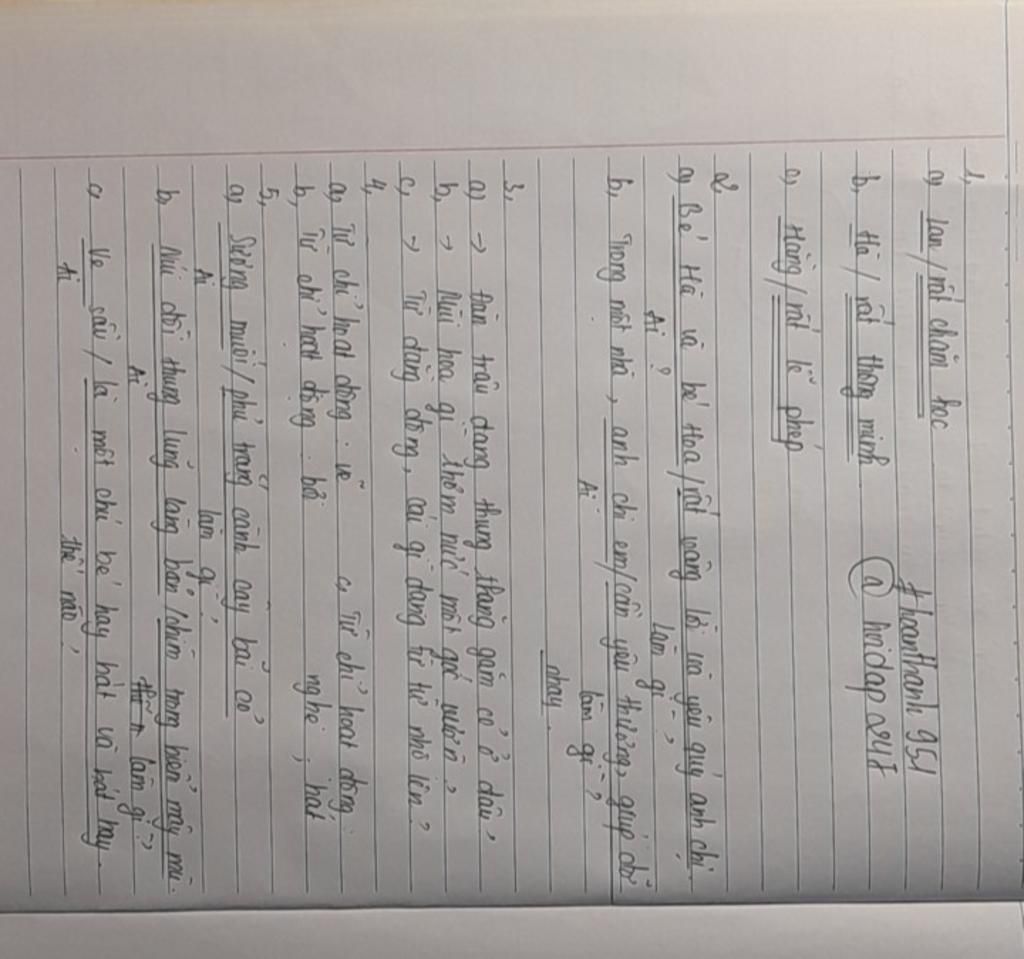 1,
a, Lan / rất chăm học
#hoanthanh951
b, Hà / rất thông minh
@ hoidap247
c, Hằng / rất lễ phép
2,
a, Bé Hà và bé Hoa / rất vâng lời và yêu quý anh chị.
Ai ? làm gì ?
b, Trong một nhà, anh chị em / cần yêu thương, giúp đỡ
Ai làm gì ?
nhay.
3,
a, → Đàn trâu đang thung thăng gặm cỏ ở đâu ?
b, → Mùi hoa gì thơm nức một góc vườn ?
c, → Từ dáng dòng, cái gì đang từ từ nhô lên ?
4,
a, Từ chỉ hoạt động : vẽ c, Từ chỉ hoạt động :
b, Từ chỉ hoạt động : bỏ nghe ; hát
5,
a, Sương muối / phủ trắng cành cây bãi cỏ
Ai làm gì ?
b, Núi đồi thung lũng làng bản / chìm trong biển mây mù.
Ai làm gì ?
c, Ve sầu / là một chú bé hay hát và hát hay.
Ai thế nào ?